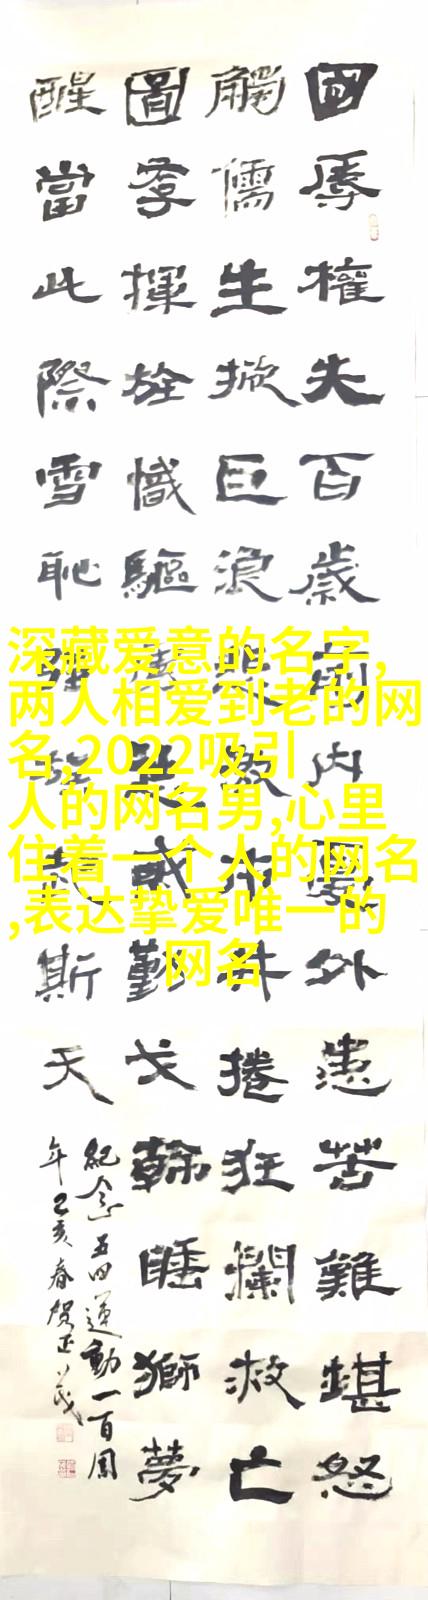 國辱權失百歲內外患苦難堪怒
觸儒生掀巨浪捲狂瀾救亡
圖存揮旌幟驅動戈睡獅夢
醒當此際雪恥斯天
紀念五四運動一百周
年己亥春賀正茂
深藏爱意的名字,
两人相爱到老的网
名,2022吸引
人的网名男,心里
住着一个人的网名
,表达挚爱唯一的
网名